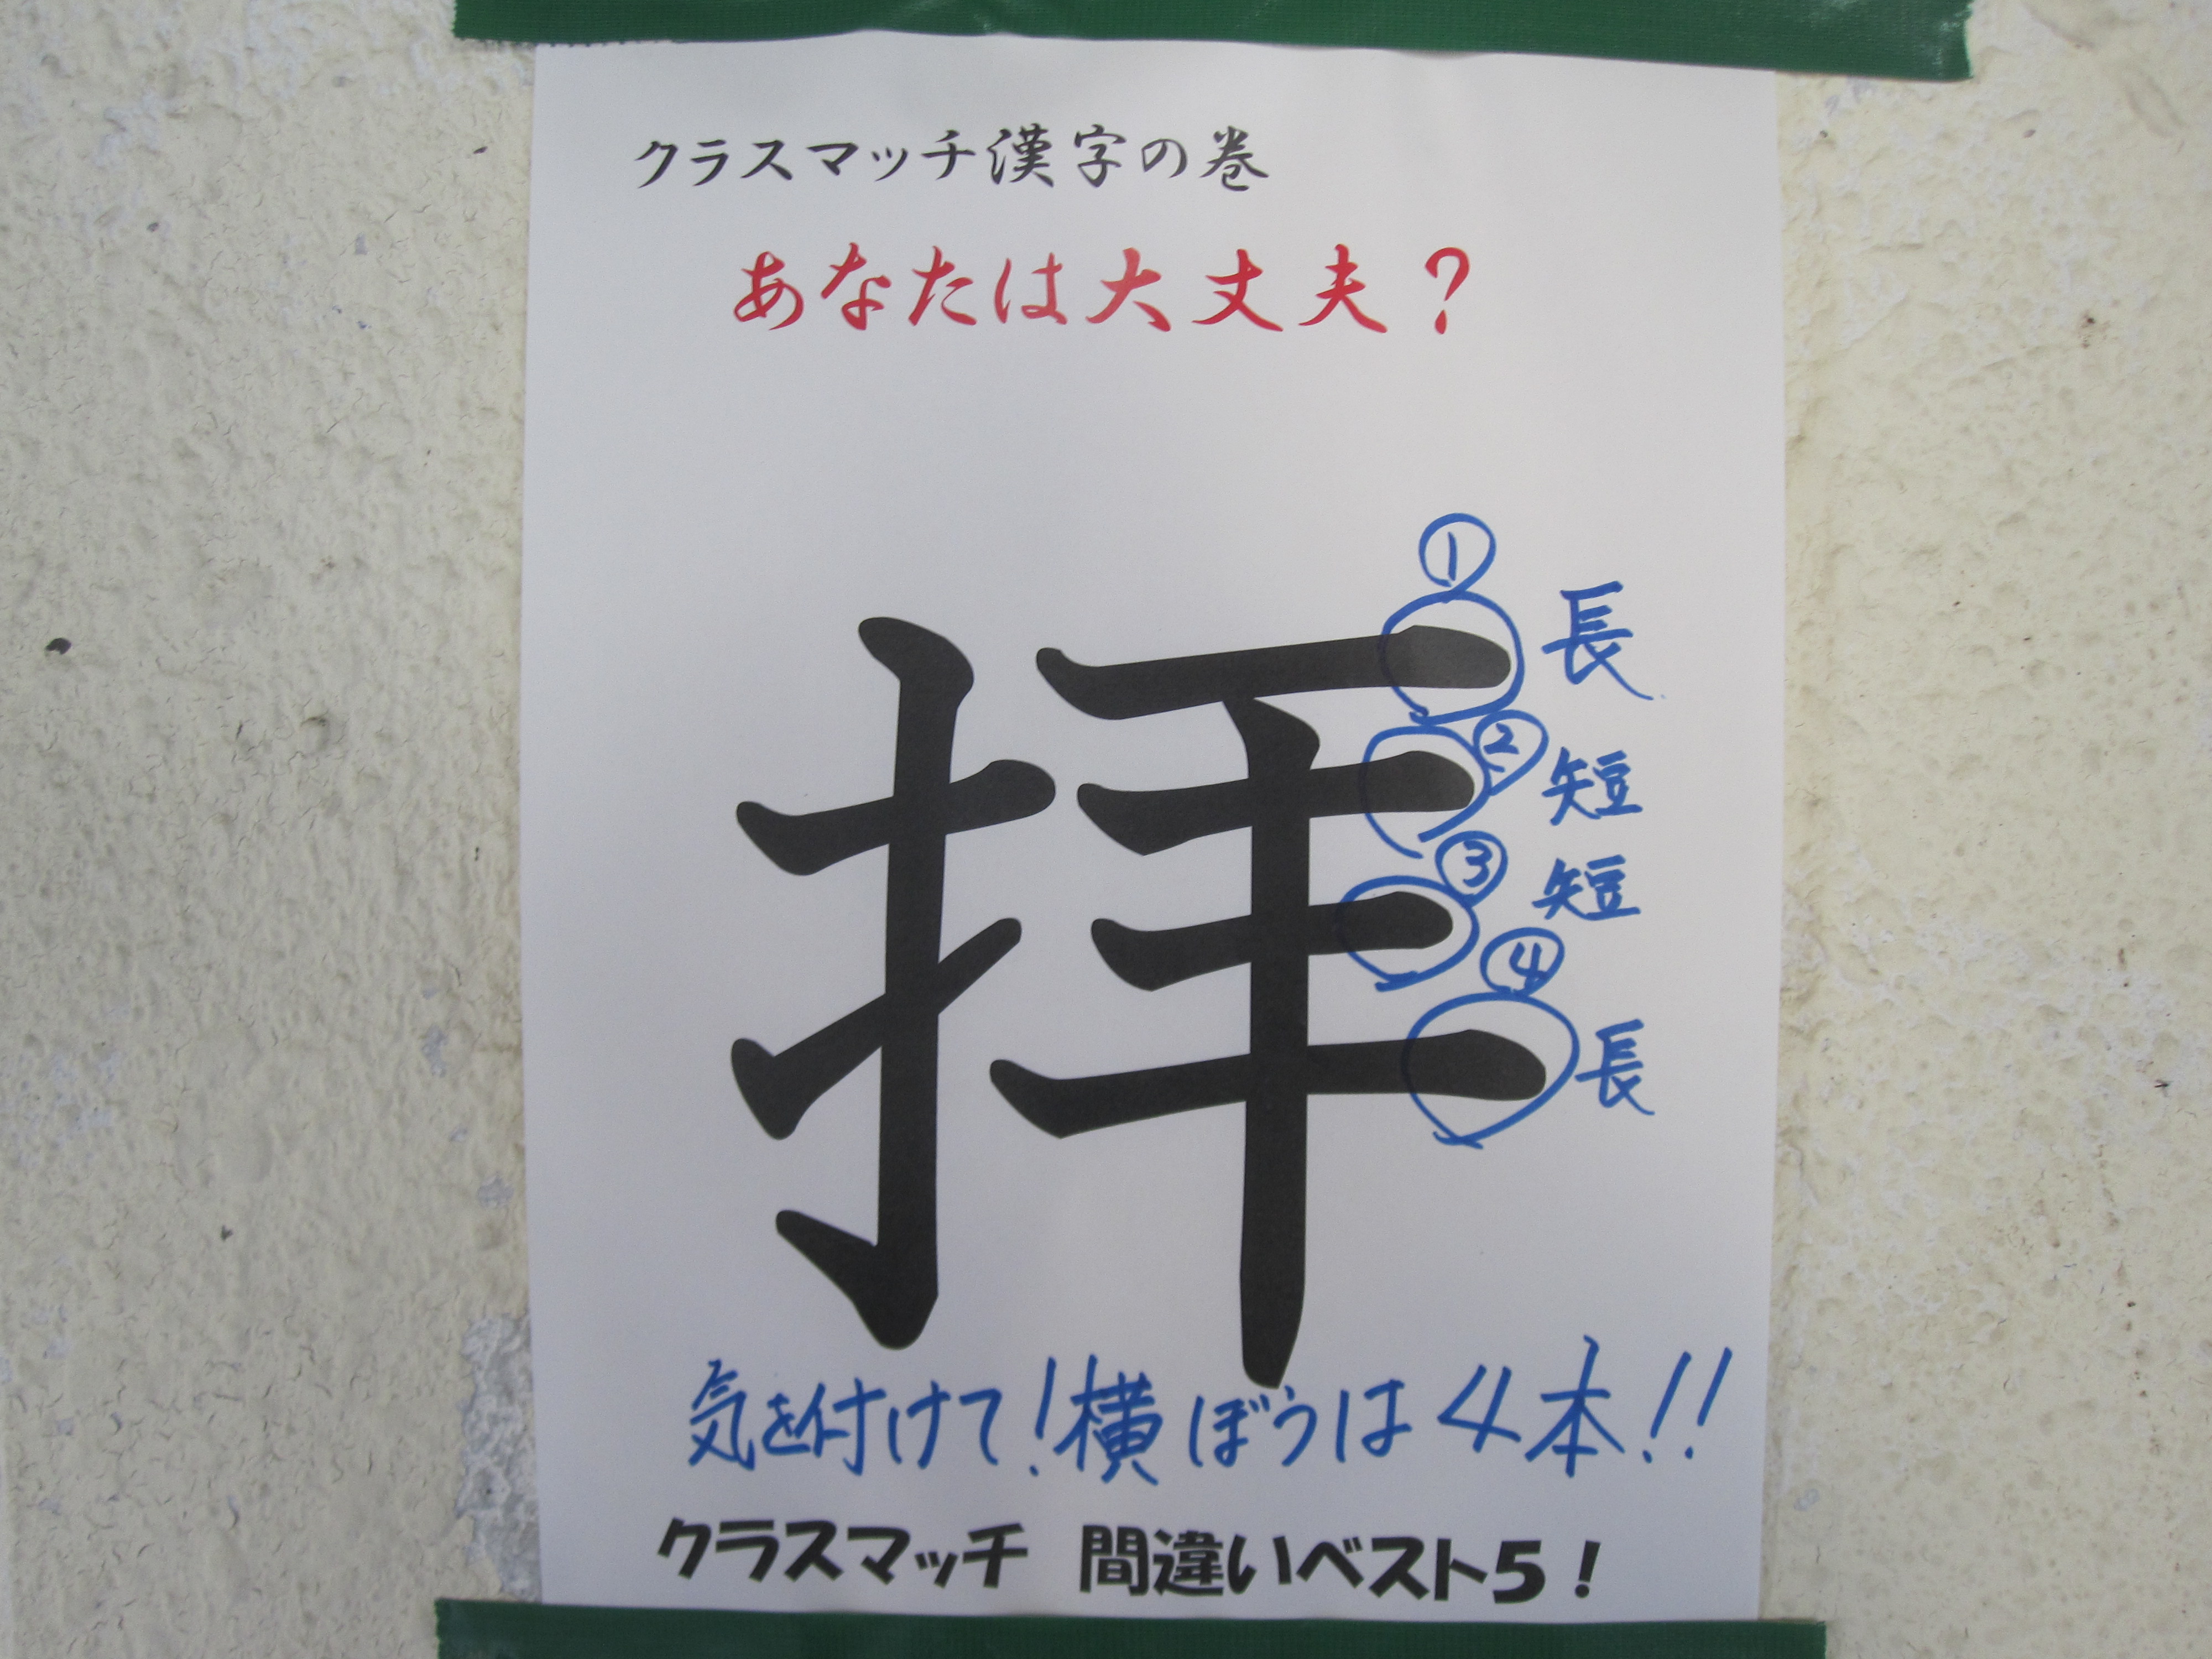 クラスマッチ漢字の巻
あなたは大丈夫？
拝
① 長
② 短
③ 短
④ 長
気を付けて！横ぼうは4本!!
クラスマッチ 間違いベスト5！